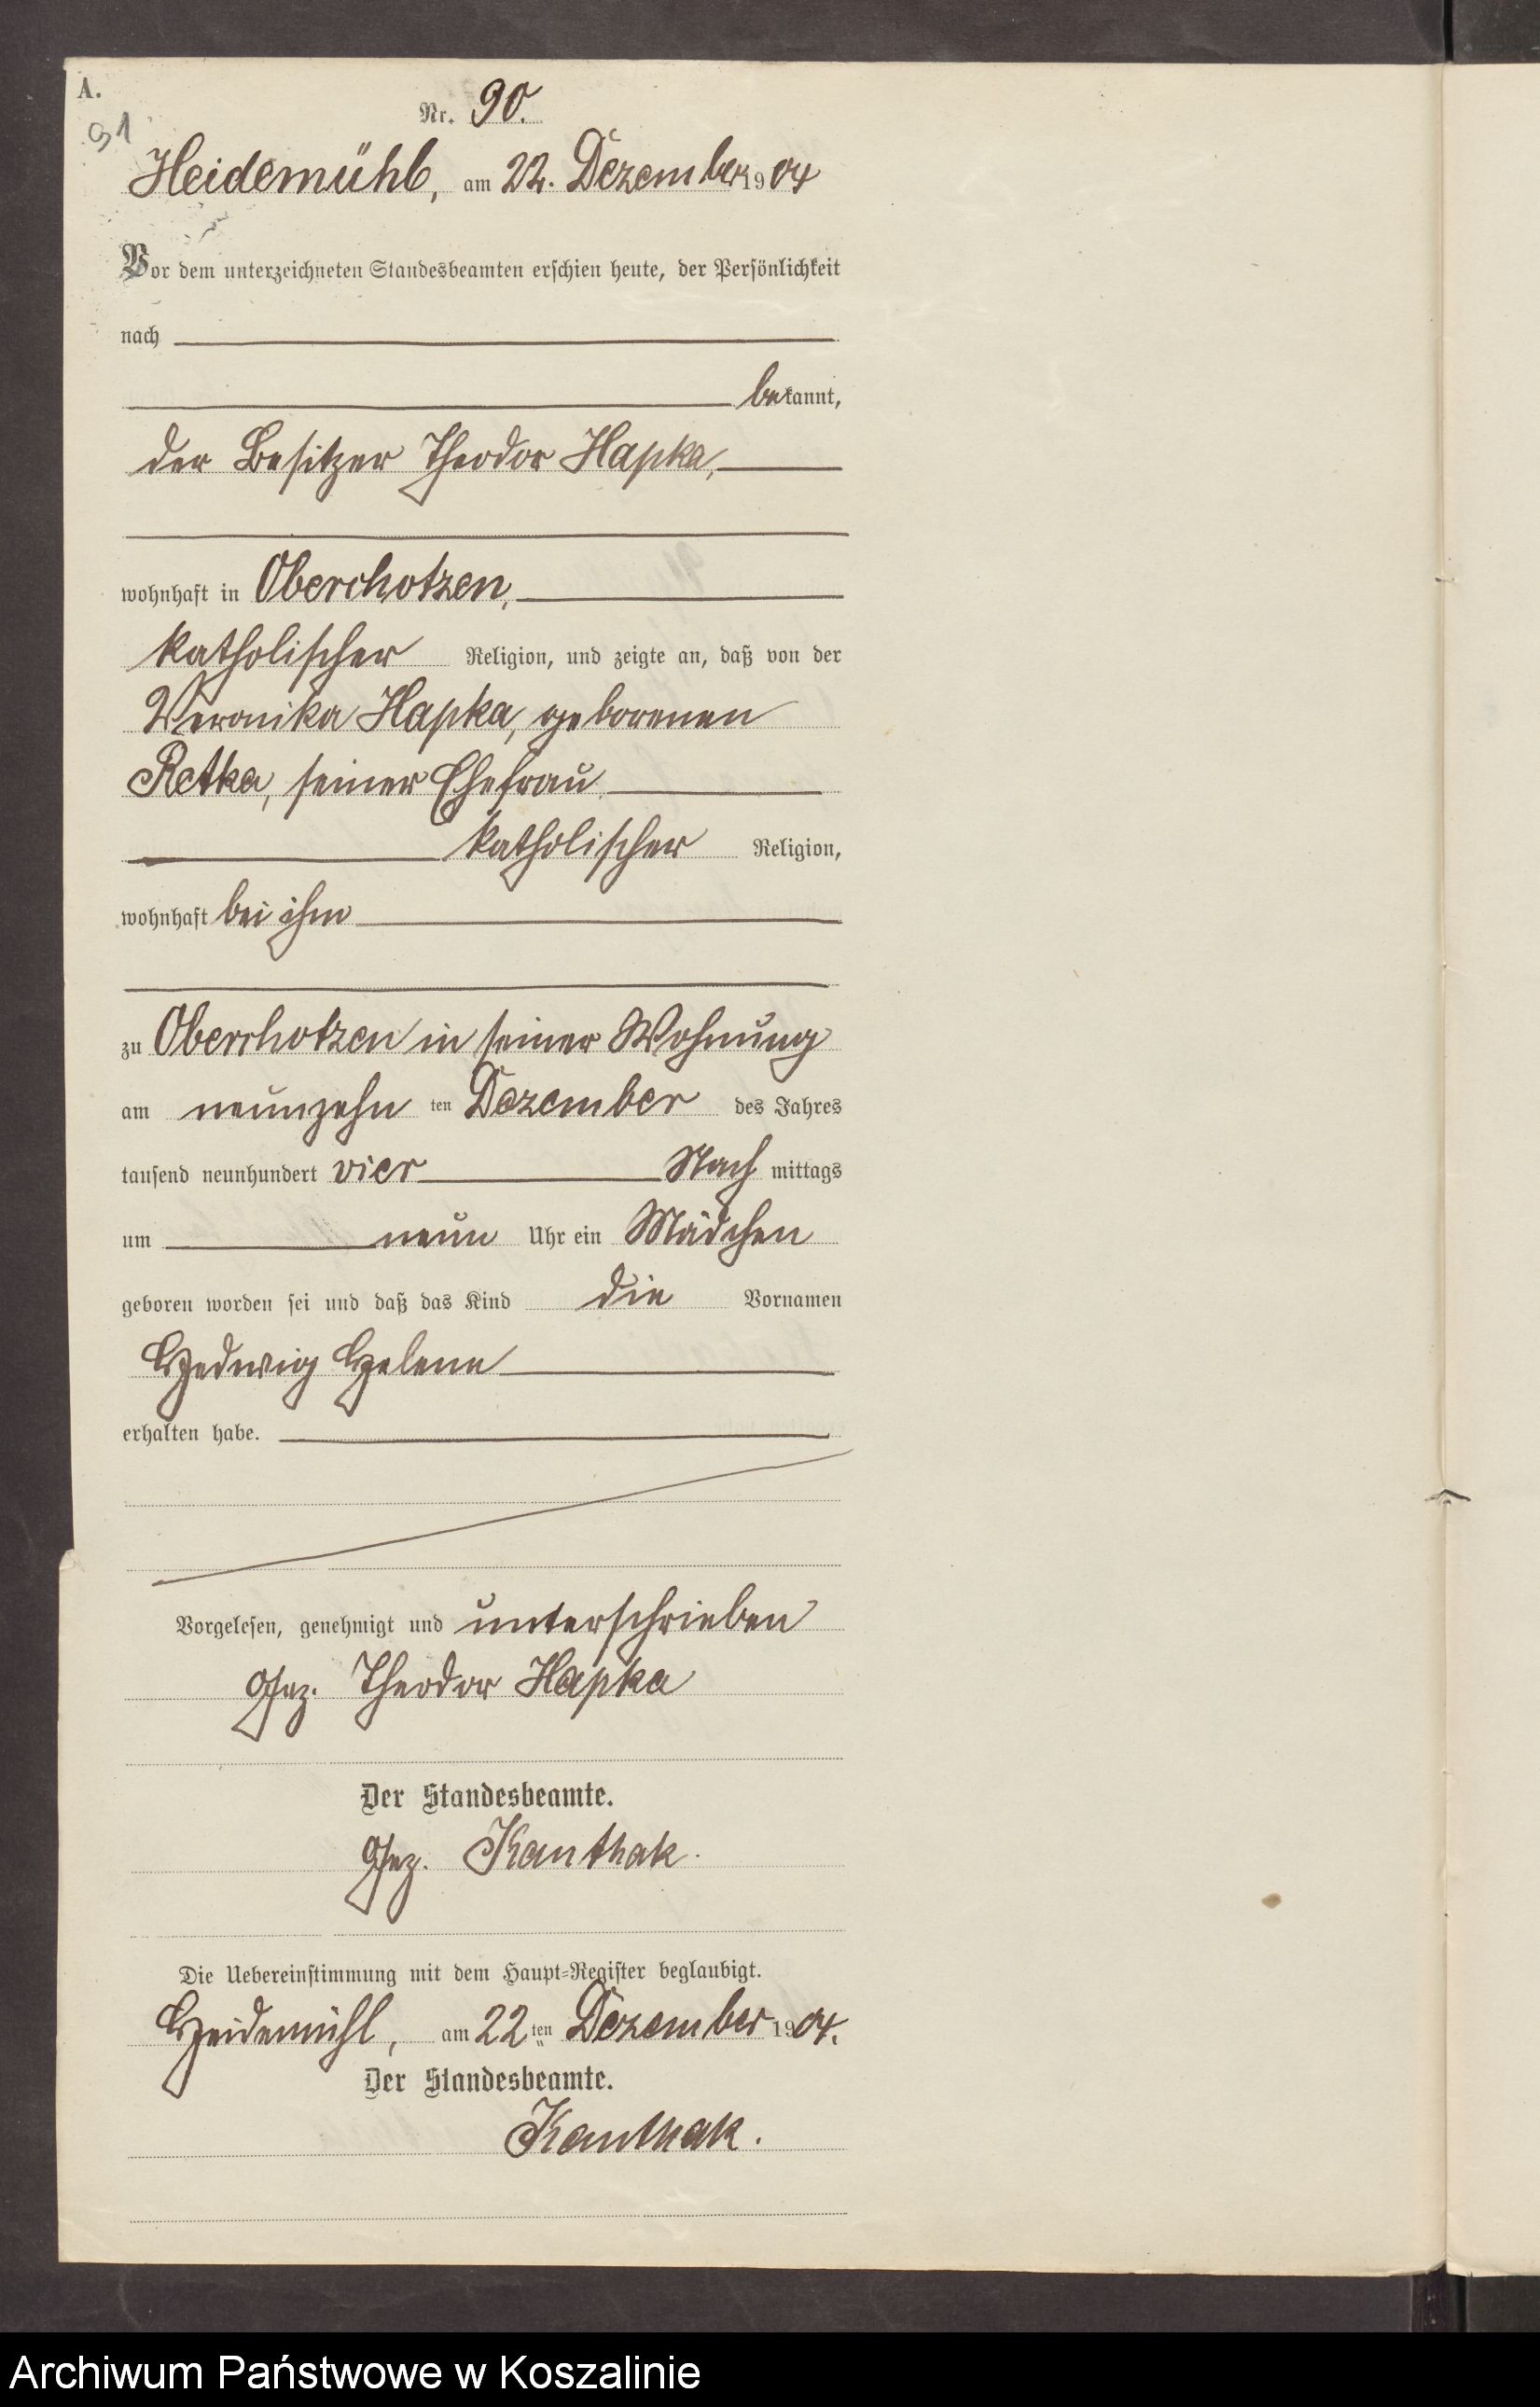 A.
91
Nr. 90.
Heidemühl, am 22. Dezember 1904
Vor dem unterzeichneten Standesbeamten erschien heute, der Persönlichkeit
nach
bekannt,
der Besitzer Theodor Hapka,
wohnhaft in Oberchotzen,
katholischer Religion, und zeigte an, daß von der
Veronika Hapka, geborenen
Retka, seiner Ehefrau
katholischer Religion,
wohnhaft bei ihm
zu Oberchotzen in seiner Wohnung
am neunzehn ten Dezember des Jahres
tausend neunhundert vier Nach mittags
um neun Uhr ein Mädchen
geboren worden sei und daß das Kind die Vornamen
Hedwig Helene
erhalten habe.
Vorgelesen, genehmigt und unterschrieben
Gez. Theodor Hapka
Der Standesbeamte.
Gez. Kanthak.
Die Uebereinstimmung mit dem Haupt=Register beglaubigt.
Heidemühl, am 22ten Dezember 1904.
Der Standesbeamte.
Kanthak.
Archiwum Państwowe w Koszalinie